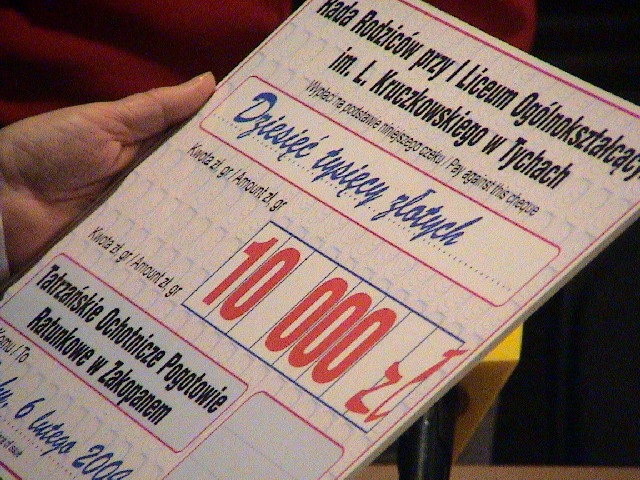 Rada Rodziców przy I Liceum Ogólnokształcący
im. L. Kruczkowskiego w Tychach
Wypłaci na podstawie niniejszego czeku / Pay against this cheque
Dziesięć tysięcy złotych
Kwota zł, gr / Amount zł, gr
Kwota zł, gr / Amount zł, gr
10 000 zł
Tatrzańskie Ochotnicze Pogotowie
Ratunkowe w Zakopanem
Komu / To
6 lutego 2009